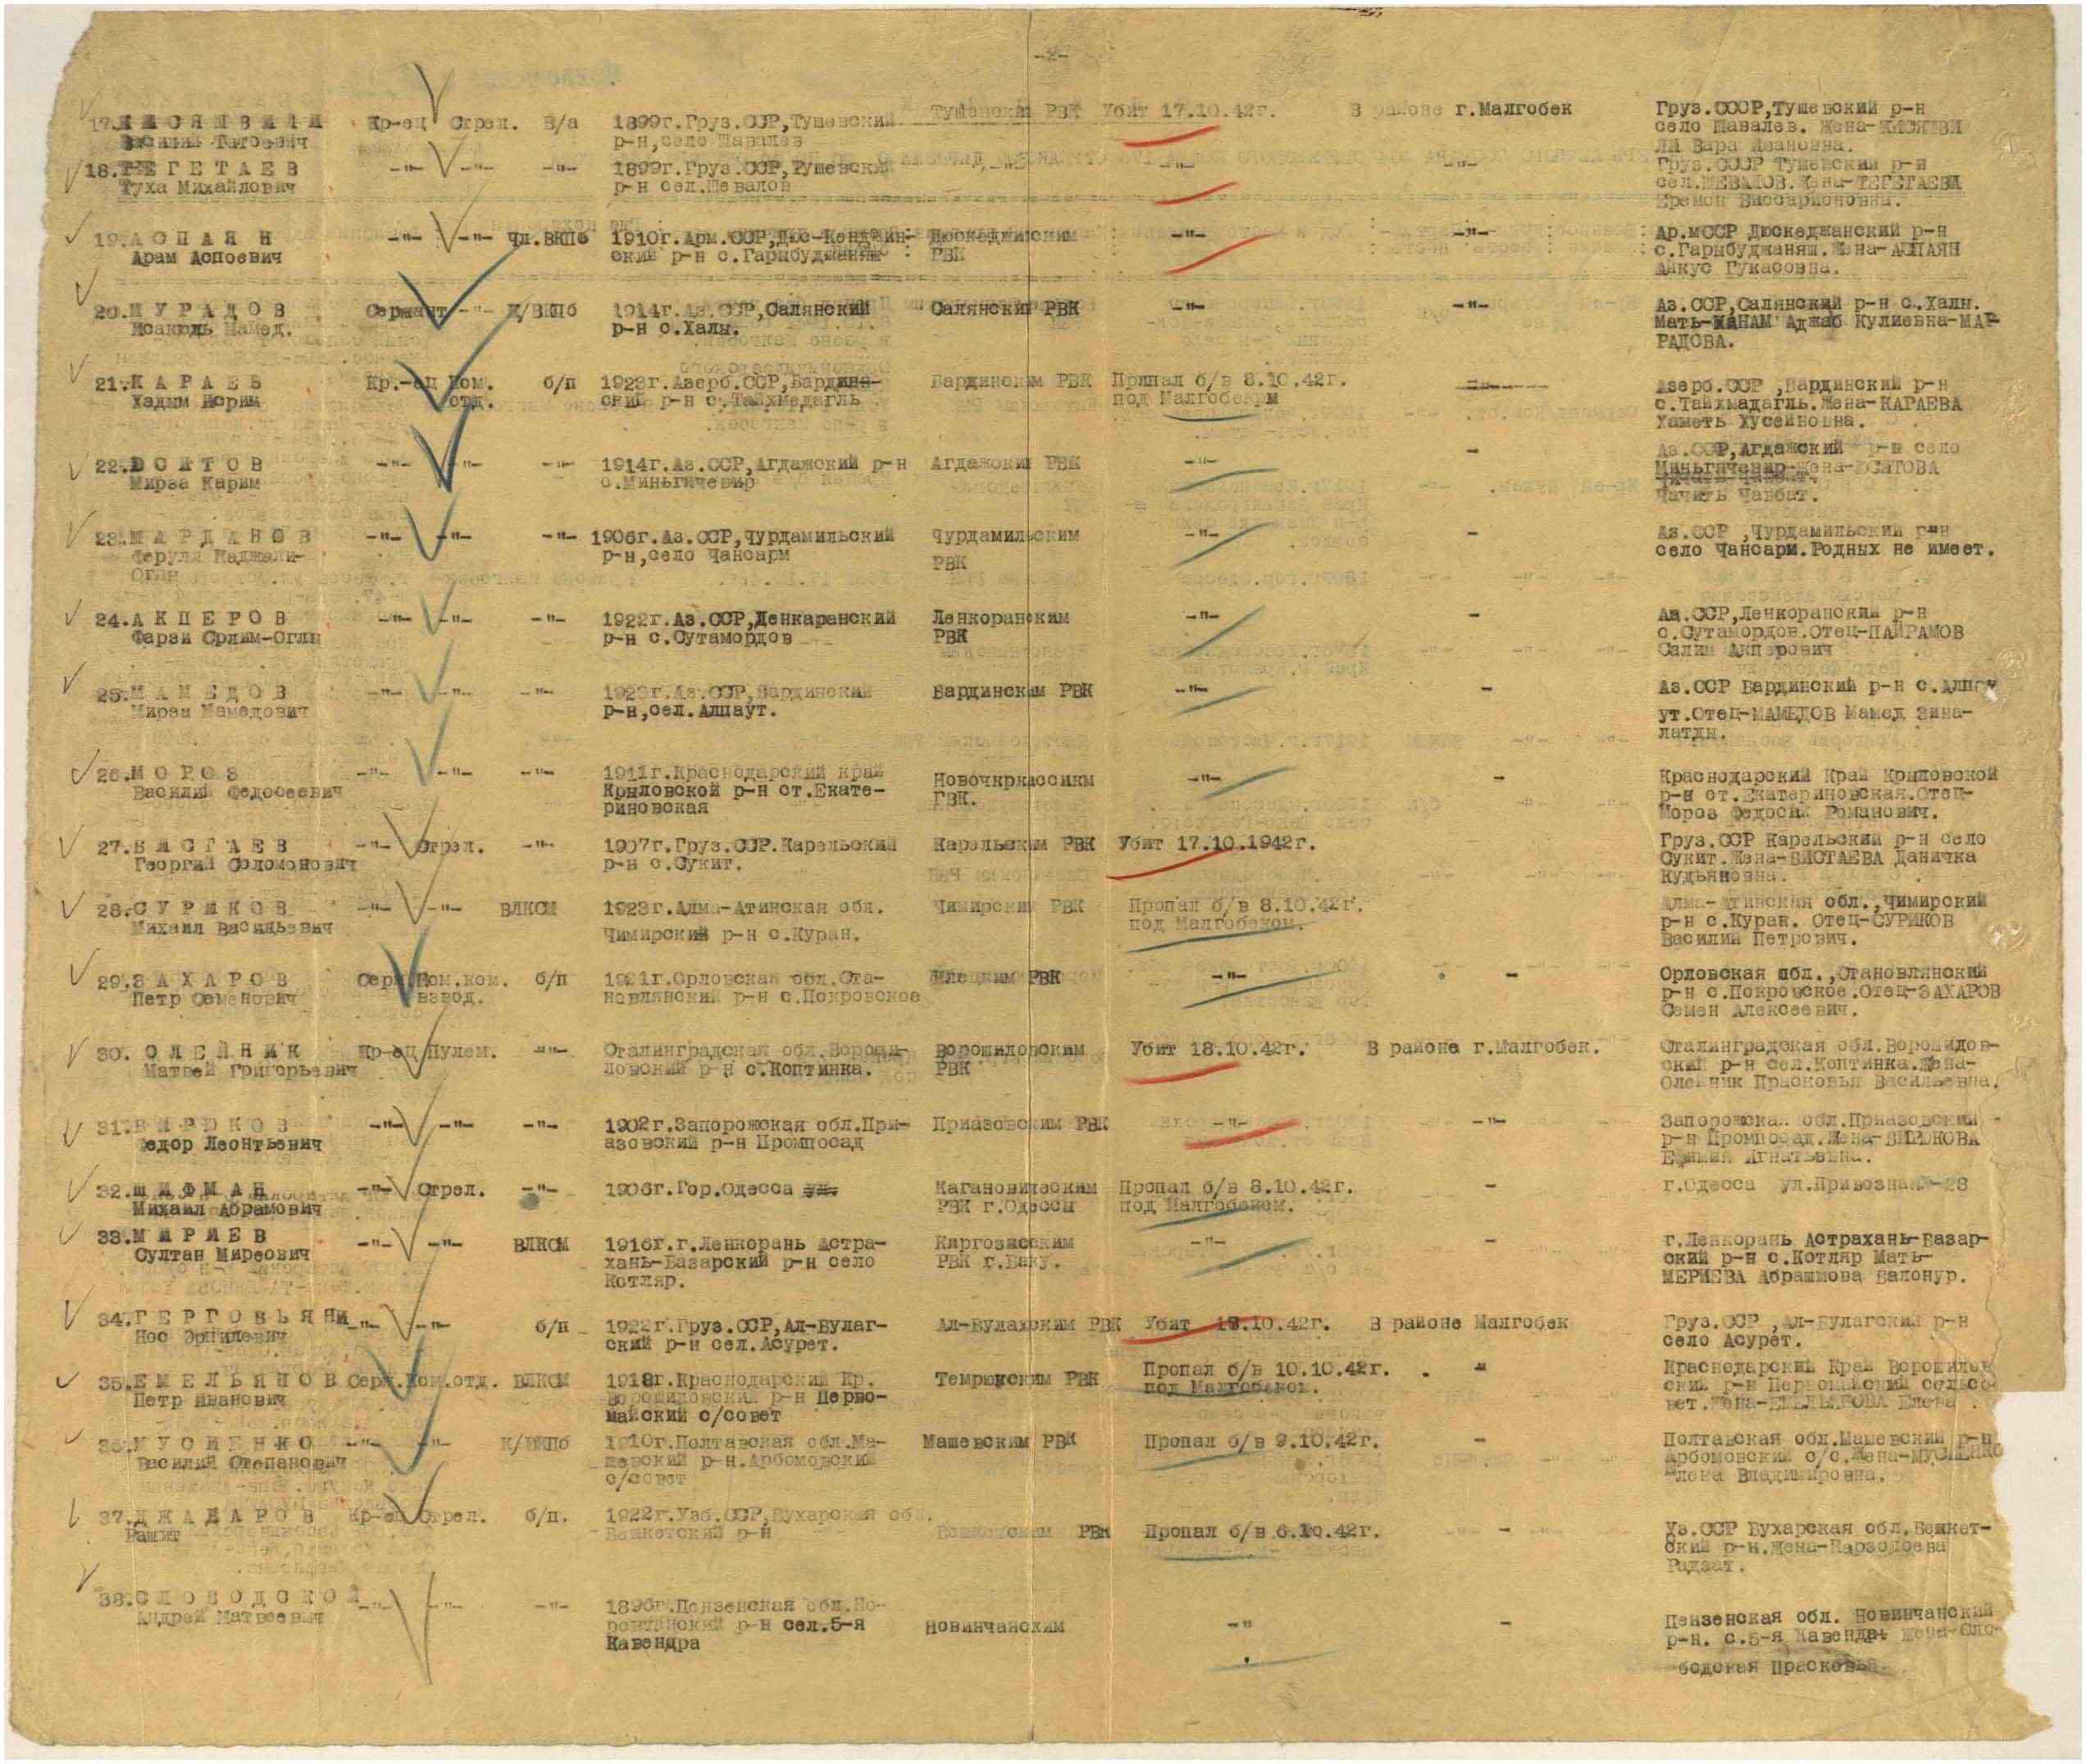 -2-
17. Кр-ец Стрел. Б/а 1899г.Груз.ССР,Тушевский Тушевский РВК Убит 17.10.42г. В районе г.Малгобек Груз.СССР,Тушевский р-н
р-н,село Шавалев село Шавалев. Жена-
ЛИ Вара Ивановна.
18.ТЕГЕТАЕВ -"- -"- -"- 1899г.Груз.ССР, -"- -"- Груз.СССР Тушевский р-н
Туха Михайлович р-н сел.Шевалов сел.ШЕВАЛОВ.Жена-ТЕГЕТАЕВА
Виссарионовна.
19.АСПАЯН -"- -"- Чл.ВКПб 1910г.Арм.ССР,Дюс-Кенджин- Дюскеджинским -"- -"- Ар.мССР Дюскеджанский р-н
Арам Аспоевич ский р-н с.Гарыбуджаняш РВК с.Гарыбуджаняш.Жена-АСПАЯН
Айкус Гукасовна.
20.МУРАДОВ Сержант -"- К/ВКПб 1914г.Аз.ССР,Салянский Салянским РВК -"- -"- Аз.ССР,Салянский р-н с.Халы.
Мамед. р-н с.Халы. Мать-ХАНАМ Аджаб Кулиевна-МАР-
РАДОВА.
21.КАРАЕВ Кр.-ец Ком. б/п 1923г.Азерб.ССР,Бардин- Бардинским РВК Пропал б/в 8.10.42г. Азерб.ССР ,Бардинский р-н
Хадым Исрим отд. ский р-н с.Тайхмадагль под Малгобеком с.Тайхмадагль.Жена-КАРАЕВА
Хаметь Хусейновна.
22.ЮСИТОВ -"- -"- -"- 1914г.Аз.ССР,Агдажский р-н Агдажским РВК -"- - Аз.ССР,Агдажский р-н село
Мирза Карим с.Миньгичевир Миньгичевир-жена-
Чачить Чанбат.
23.МАРДАНОВ -"- -"- -"- 1906г.Аз.ССР,Чурдамильский Чурдамильским -"- - Аз.ССР ,Чурдамильский р-н
Ферулл Маджали- р-н,село Чансарм РВК село Чансарм.Родных не имеет.
Оглы
24.АКПЕРОВ -"- -"- -"- 1922г.Аз.ССР,Ленкаранский Ленкоранским -"- - Аз.ССР,Ленкоранский р-н
Фарзи Срлим-Оглы р-н с.Сутамордов РВК с.Сутамордов.Отец-ПАЙРАМОВ
Салим Акперович
25.МАМЕДОВ -"- -"- -"- 1923г.Аз.ССР,Бардинский Бардинским РВК -"- - Аз.ССР Бардинский р-н с.Алпау
Мирза Мамедович р-н,сел.Алпаут. ут.Отец-МАМЕДОВ Мамед Зина-
латды.
26.МОРОЗ -"- -"- -"- 1911г.Краснодарский край Новочкркассикм -"- - Краснодарский Край Крыловской
Василий Федосеевич Крыловской р-н ст.Екате- ГВК. р-н ст.Екатериновская.Отец-
риновская Мороз Федосий Романович.
27.БИСТАЕВ -"- Стрел. -"- 1907г.Груз.ССР.Карельский Карельским РВК Убит 17.10.1942г. Груз.ССР Карельский р-н село
Георгий Соломонович р-н с.Сукит. Сукит.Жена-БИСТАЕВА Даничка
Кудьяновна.
28.СУРИКОВ -"- -"- ВЛКСМ 1923г.Алма-Атинская обл. Чимирским РВК Пропал б/в 8.10.42г. Алма-Атинская обл.,Чимирский
Михаил Васильевич Чимирский р-н с.Куран. под Малгобеком. р-н с.Куран. Отец-СУРИКОВ
Василий Петрович.
29.ЗАХАРОВ Серж.Пом.ком. б/п 1921г.Орловская обл.Ста- РВК -"- - Орловская обл.,Становлянский
Петр Семенович взвод. новлянский р-н с.Покровское р-н с.Покровское.Отец-ЗАХАРОВ
Семен Алексеевич.
30. ОЛЕЙНИК Кр-ец Пулем. -"- Сталинградская обл.Вороши- Ворошиловским Убит 18.10.42г. В районе г.Малгобек. Сталинградская обл.Ворошилов-
Матвей Григорьевич ловский р-н с.Коптинка. РВК ский р-н сел.Коптинка.Жена-
Олейник Прасковья Васильевна.
31.БИРЮКОВ -"- -"- -"- 1902г.Запорожская обл.При- Приазовским РВК -"- -"- Запорожская обл.Приазовский
Федор Леонтьевич азовский р-н Промпосад р-н Промпосад.Жена-БИРЮКОВА
Ефимия Игнатьевна.
32.ШИФМАН -"- Стрел. -"- 1906г.Гор.Одесса Кагановическим Пропал б/в 8.10.42г. - г.Одесса ул.Привозная-28
Михаил Абрамович РВК г.Одессы под Малгобеком.
33.МИРИЕВ -"- -"- ВЛКСМ 1916г.г.Ленкорань Астра- -"- - г.Ленкорань Астрахань-Базар-
Султан Миреович хань-Базарский р-н село РВК г.Баку. ский р-н с.Котляр Мать-
Котляр. МЕРИЕВА Абрашмова Балонур.
34.ГЕРГОВЬЯНИ -"- -"- б/п 1922г.Груз.ССР,Ал-Булаг- Ал-Булахским РВК Убит 18.10.42г. В районе Малгобек Груз.ССР ,Ал-Булагский р-н
Нос ский р-н сел.Асурет. село Асурет.
35.ЕМЕЛЬЯНОВ Серж.Ком.отд. ВЛКСМ 1918г.Краснодарский Кр. Темрюкским РВК Пропал б/в 10.10.42г. -"- Краснодарский Край Ворошилов
Петр Иванович Ворошиловский р-н Перво- под Малгобеком. ский р-н Первомайский сельсо-
майский с/совет вет.Жена-ЕМЕЛЬЯНОВА Елена
36.МУСИЕНКО -"- -"- К/ВКПб 1910г.Полтавская обл.Ма- Машевским РВК Пропал б/в 9.10.42г. - Полтавская обл.Машевский р-н
Василий Степанович шевский р-н.Арбомовский Арбомовский с/с.Жена-МУСИЕНКО
с/совет Елена Владимировна.
37.ДЖАБАРОВ Кр-ец Стрел. б/п. 1922г.Узб.ССР,Бухарская об. РВК Пропал б/в 6.10.42г. - Уз.ССР Бухарская обл.Бешкет-
Рашит Бешкетский р-н ский р-н.Жена-
Радзат.
38.СЛОБОДСКОЙ -"- -"- -"- 1896г.Пензенская обл. Новинчанским -" - Пензенская обл. Новинчанский
Андрей Матвеевич р-н сел.5-я р-н. с.5-я Кавендра Жена-Сло-
Кавендра бодская Прасковья.